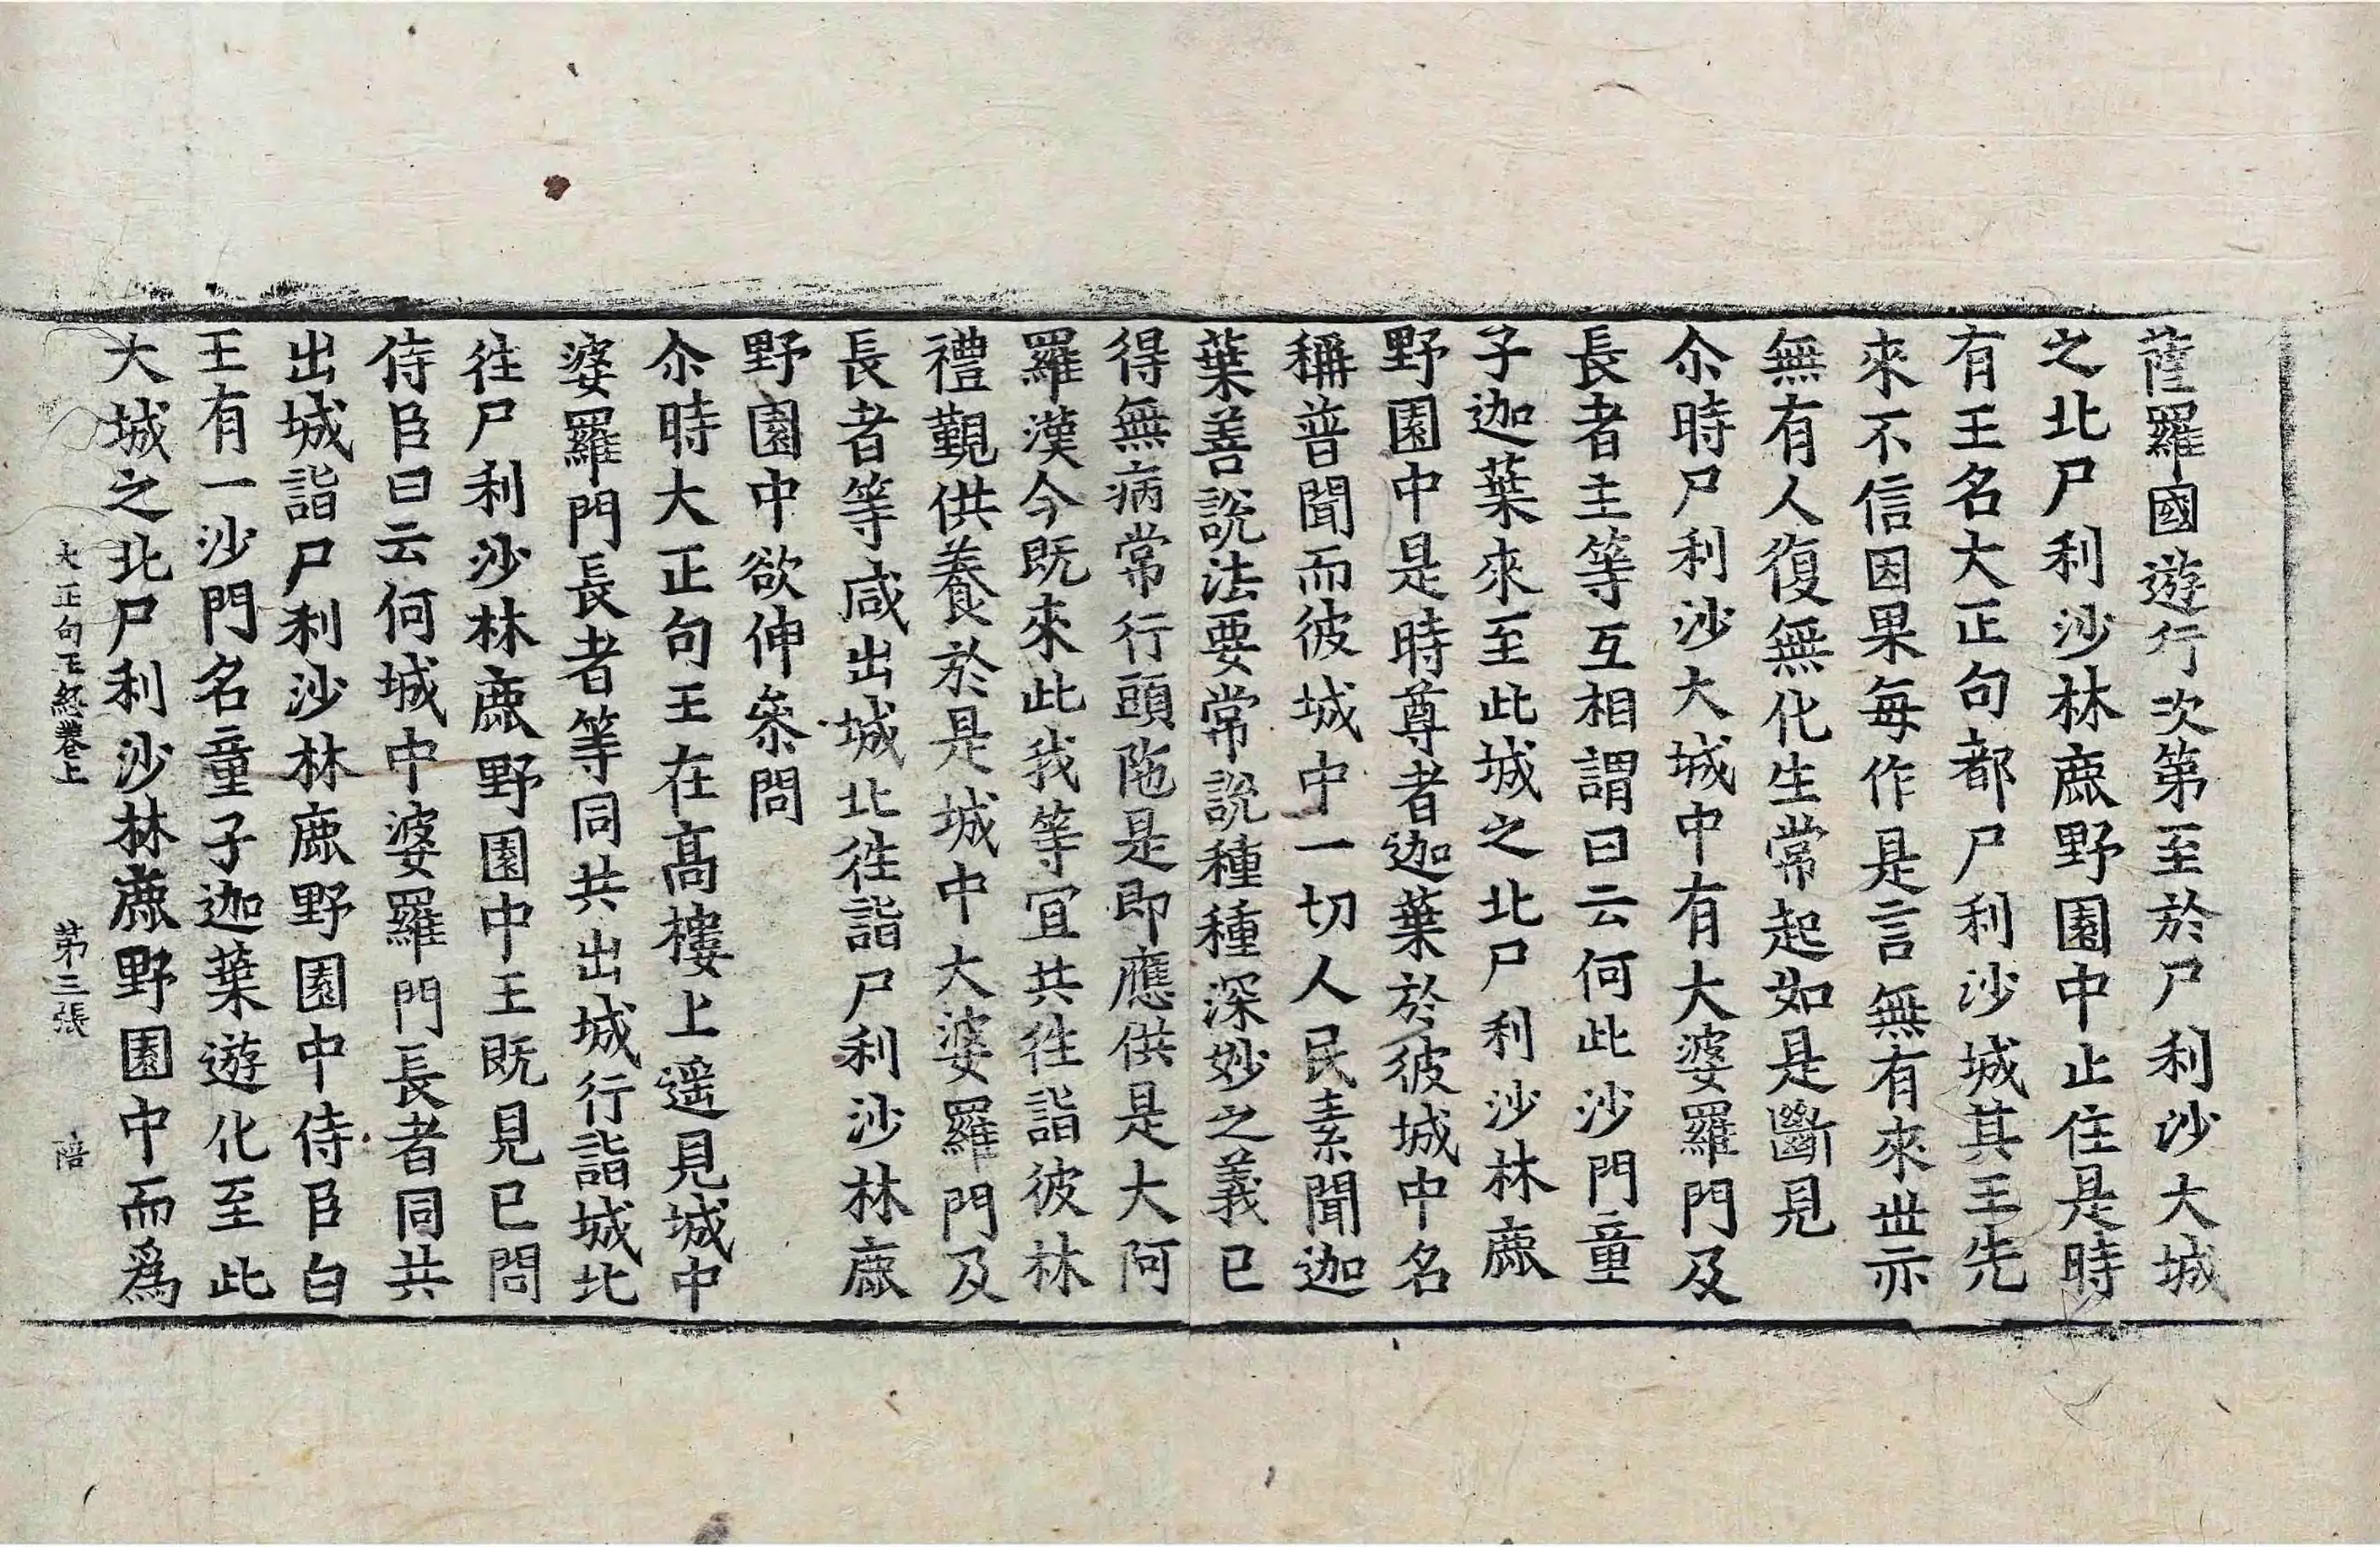 薩羅國遊行次第至於尸利沙大城
之北尸利沙林鹿野園中止住是時
有王名大正句都尸利沙城其王先
來不信因果每作是言無有來世亦
無有人復無化生常起如是斷見
尒時尸利沙大城中有大婆羅門及
長者主等互相謂曰云何此沙門童
子迦葉來至此城之北尸利沙林鹿
野園中是時尊者迦葉於彼城中名
稱普聞而彼城中一切人民素聞迦
葉善說法要常說種種深妙之義已
得無病常行頭陁是即應供是大阿
羅漢今既來此我等宜共徃詣彼林
禮覲供養於是城中大婆羅門及
長者等咸出城北徃詣尸利沙林鹿
野園中欲伸叅問
尒時大正句王在高樓上遥見城中
婆羅門長者等同共出城行詣城北
往尸利沙林鹿野園中王既見已問
侍臣曰云何城中婆羅門長者同共
出城詣尸利沙林鹿野園中侍臣白
王有一沙門名童子迦葉遊化至此
大城之北尸利沙林鹿野園中而爲
大正句王経卷上 第三張 陪